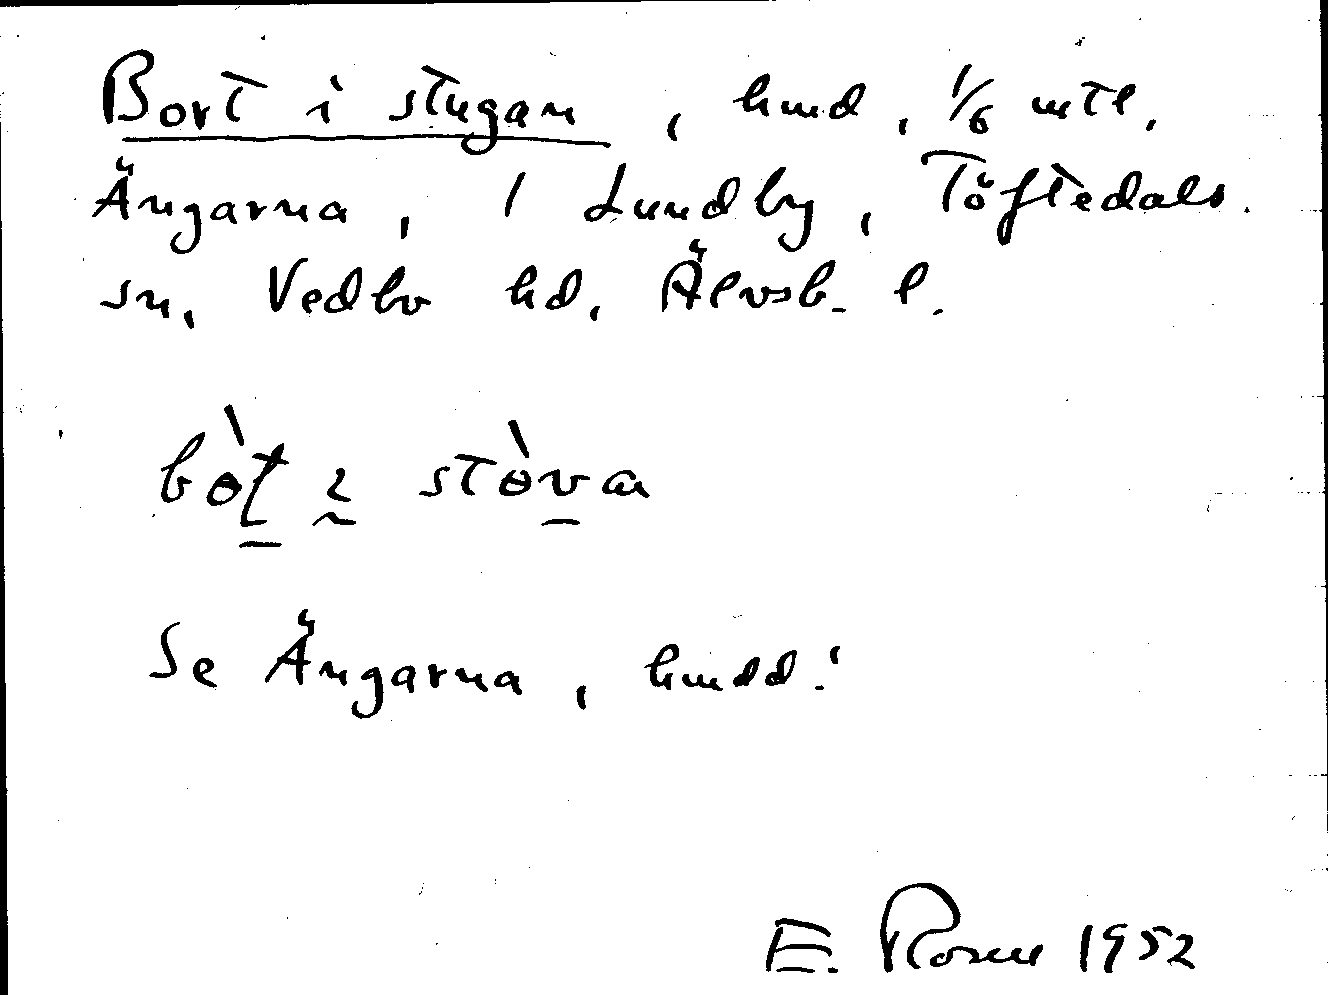 Bort i stugan, hmd, 1/6 mtl,
Ängarna, 1 Lundby, Töftedals
sn, Vedbo hd, Älvsb. l.
bòt ɩ stòva
Se Ängarna, hmdd!
E. Rosen 1952